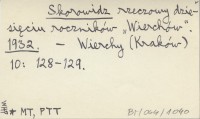 Skorowidz rzeczowy dzie-
sięciu roczników „Wierchów".
1932. – Wierchy (Kraków)
10: 128-129.
* MT, PTT